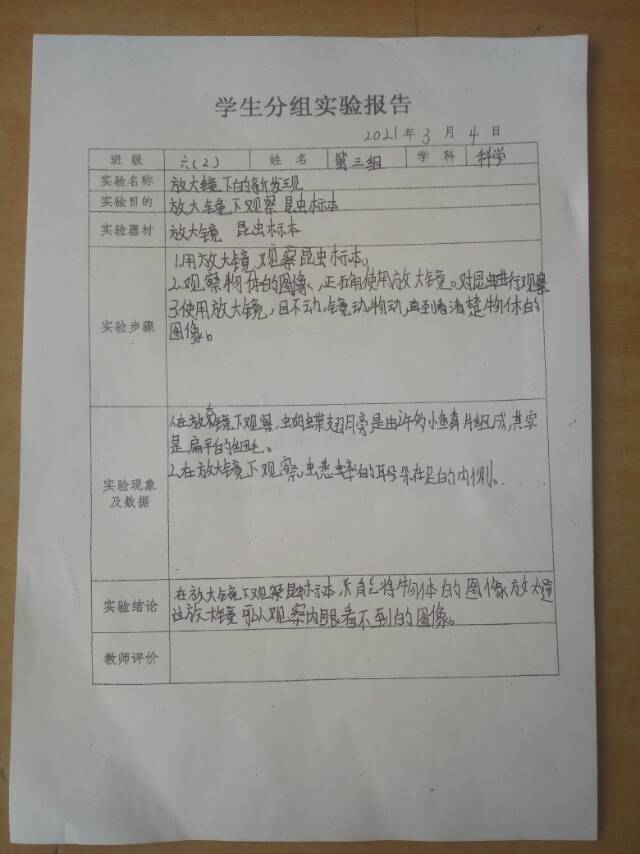 学生分组实验报告
2021年3月4日
班级 六(2) 姓名 第三组 学科 科学
实验名称 放大镜下的新发现
实验目的 放大镜下观察昆虫标本
实验器材 放大镜 昆虫标本
实验步骤
1.用放大镜观察昆虫标本。
2.观察物体的图像,正确使用放大镜。对昆虫进行观察
3.使用放大镜,目不动,镜动物动,直到看清楚物体的
图像。
实验现象及数据
1.在放大镜下观察,蝴蝶翅膀是由许多小鱼鳞片组成,其实
是扁平的细毛。
2.在放大镜下观察,蟋蟀的耳朵在足的内侧。
实验结论
在放大镜下观察昆虫标本,能将物体的图像放大,通
过放大镜可以观察肉眼看不到的图像。
教师评价